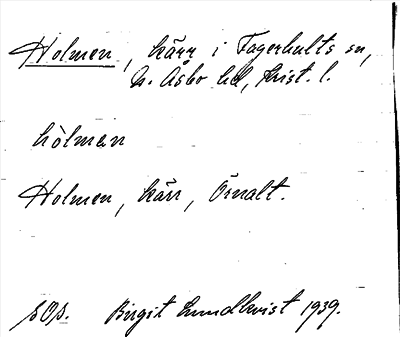 Holmen, kärr i Fagerhults sn,
N. Åsbo hd, Krist. l.
hòlmən
Holmen, kärr, Örnalt.
SOp. Birgit Lundkvist 1939.